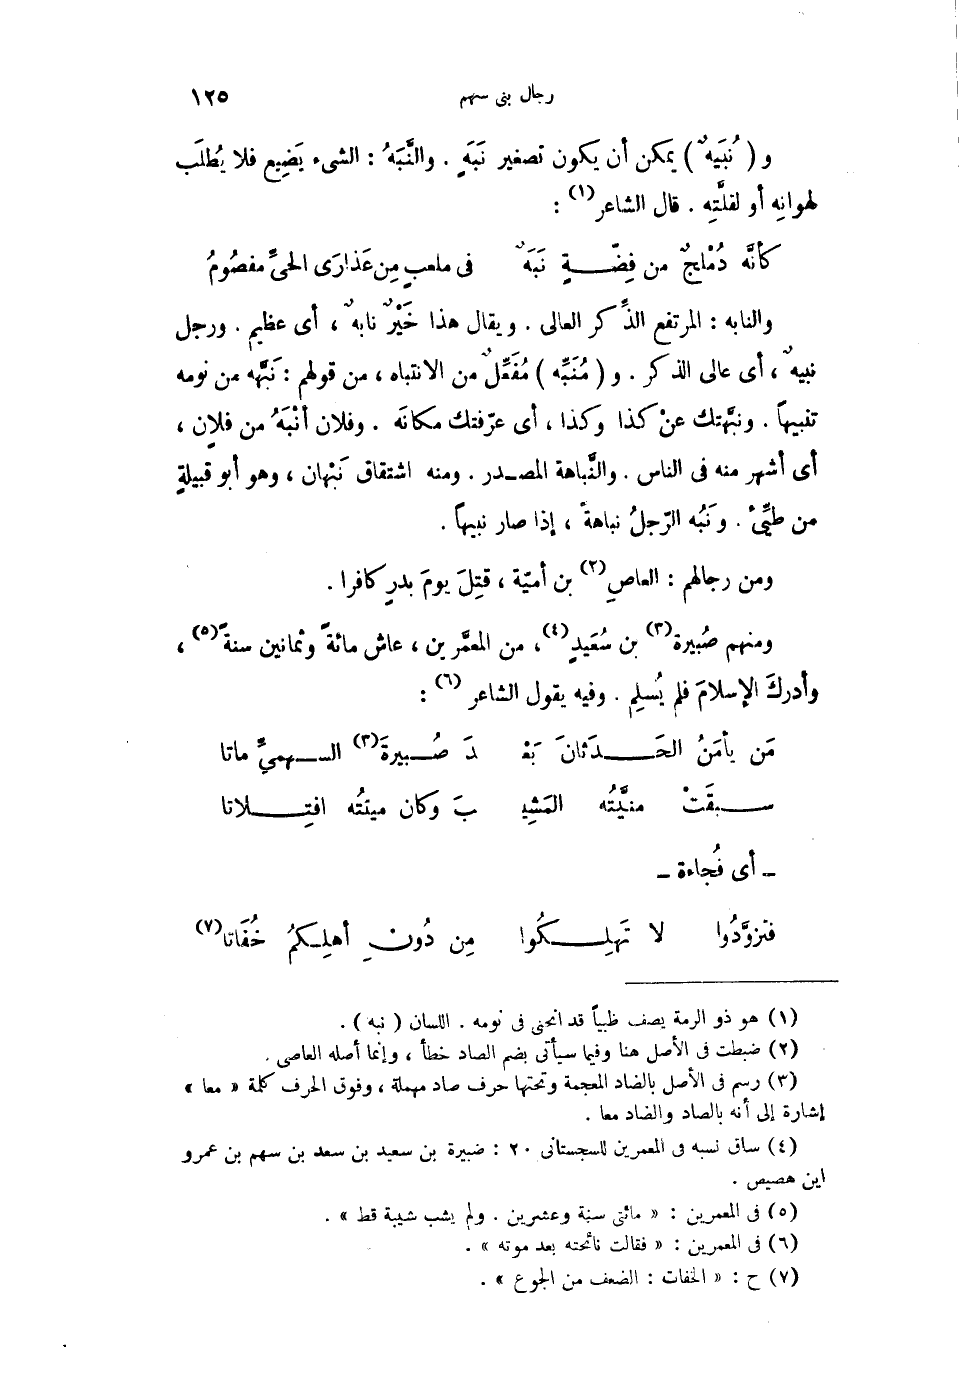 رجال بنى سهم ١٢٥
و ( نُبَيهٌ ) يمكن أن يكون تصغير نَبَهٍ . والنَّبَهُ : الشىء يَضِيع فلا يُطلَب
لهوانِه أو لقلَّتِه . قال الشاعر(١) :
كأنَّه دُمْلجٌ من فِضّـــةٍ نَبَهٌ فى ملعبٍ مِن عَذارَى الحىِّ مفصُومُ
والنابه : المرتفع الذِّكر العالى . ويقال هذا خَيْرٌ نابهٌ ، أى عظيم . ورجل
نبيهٌ ، أى عالى الذكر . و ( مُنَبِّه ) مُفَعِّلٌ من الانتباه ، من قولهم : نَبَّهه من نومه
تنبيهاً . ونبَّهتك عنْ كذا وكذا ، أى عرّفتك مكانَه . وفلان أنْبَهُ من فلانٍ ،
أى أشهر منه فى الناس . والنَّباهة المصـدر . ومنه اشتقاق نَبْهان ، وهو أبو قبيلةٍ
من طيِّئ . ونَبُه الرّجلُ نباهةً ، إذا صار نبيهاً .
ومن رجالهم : العاصِ(٢) بن أميّة ، قتِلَ يومَ بدرٍ كافرا .
ومنهم صُبيرة(٣) بن سُعَيدٍ(٤)، من المعمَّرين ، عاش مائةً وثمانين سنةً(٥) ،
وأدركَ الإسلامَ فلم يُسلِم . وفيه يقول الشاعر(٦) :
مَن يأمَنُ الحَــدَثانَ بَعْـ ـدَ صُــبيرةَ(٣) الســهمىِّ ماتا
ســبقَتْ منيَّتُه المَشِيـ ـبَ وكان ميتتُه افتِــلاتا
ــ أى فُجاءة ــ
فتزوَّدُوا لا تَهلِــكُوا مِن دُونِ أهلِـكمُ خُفَاتا(٧)
(١) هو ذو الرمة يصف ظبياً قد انحنى فى نومه . اللسان ( نبه ) .
(٢) ضبطت فى الأصل هنا وفيما سيأتى بضم الصاد خطأ ، وإنما أصله العاصى .
(٣) رسم فى الأصل بالضاد المعجمة وتحتها حرف صاد مهملة ، وفوق الحرف كلمة « معا »
إشارة إلى أنه بالصاد والضاد معا .
(٤) ساق نسبه فى المعمرين للسجستانى ٢٠ : ضبيرة بن سعيد بن سعد بن سهم بن عمرو
ابن هصيص .
(٥) فى المعمرين : « مائتى سنة وعشرين . ولم يشب شيبة قط » .
(٦) فى المعمرين : « فقالت نائحته بعد موته » .
(٧) ح : « الخفات : الضعف من الجوع » .